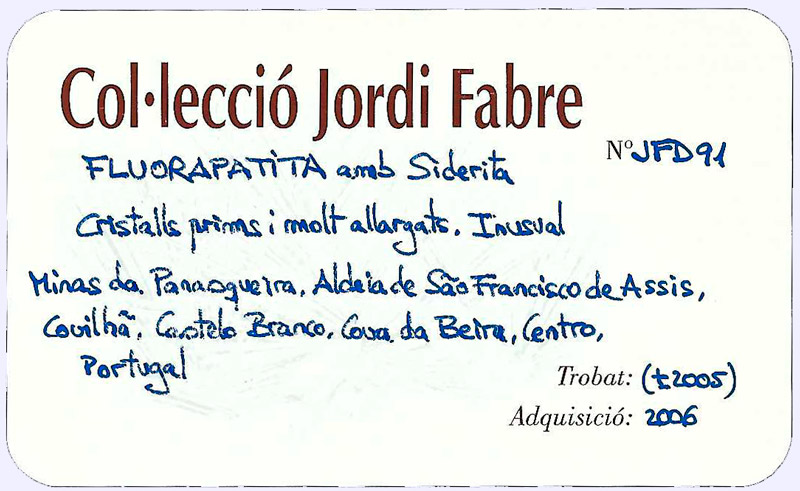 Col·lecció Jordi Fabre
Nº JFD91
FLUORAPATITA amb Siderita
Cristalls prims i molt allargats. Inusual
Minas da Panasqueira, Aldeia de São Francisco de Assis,
Covilhã, Castelo Branco, Cova da Beira, Centro,
Portugal
Trobat: (±2005)
Adquisició: 2006